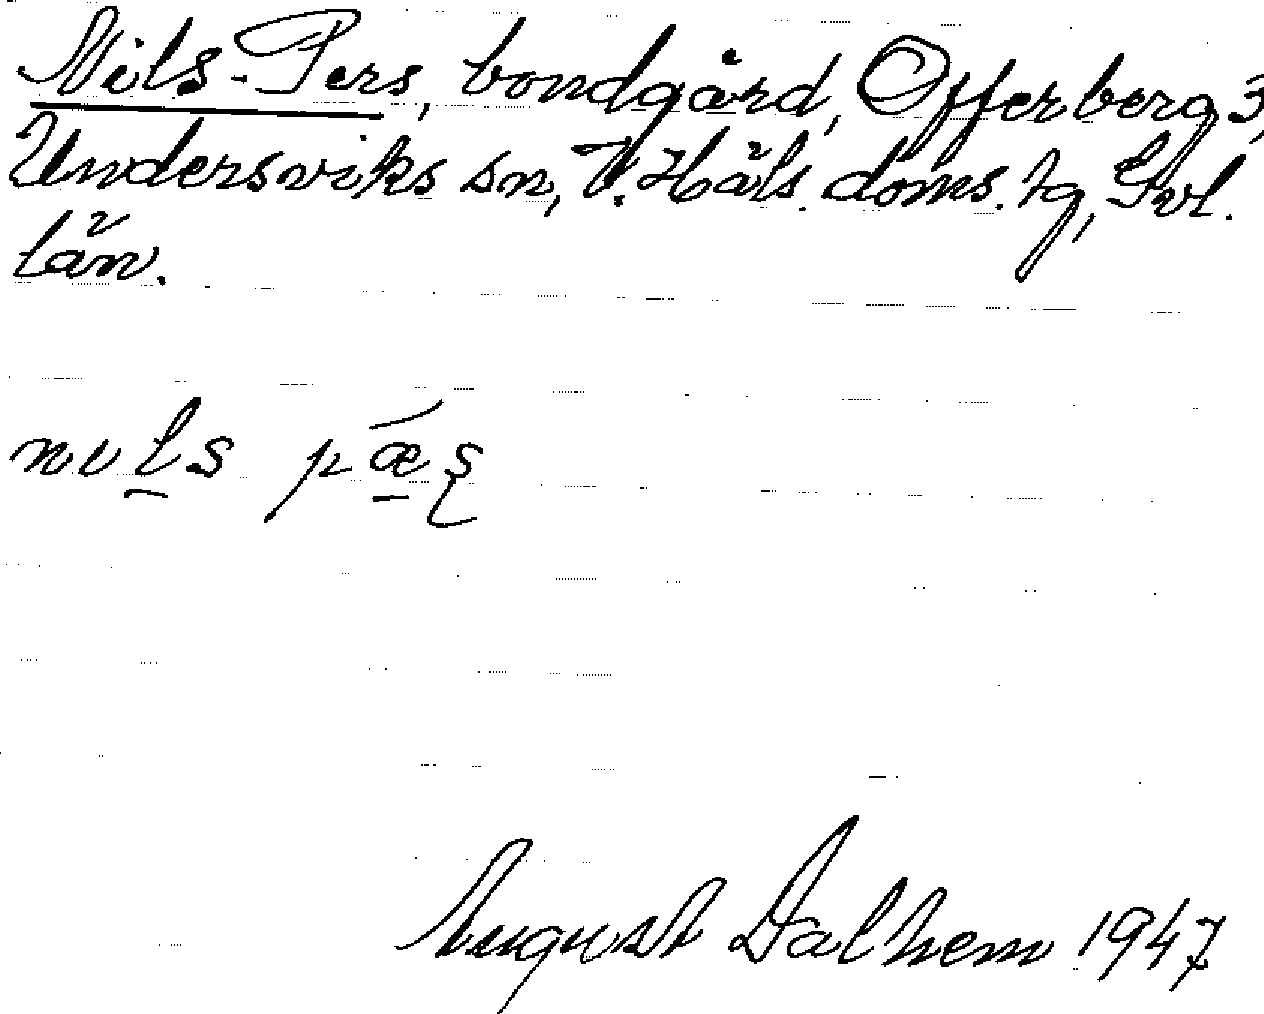 Nils-Pers, bondgård, Offerberg 3,
Undersviks sn, V. Häls. doms. lg, Gvl.
län.
August Dalhem 1947